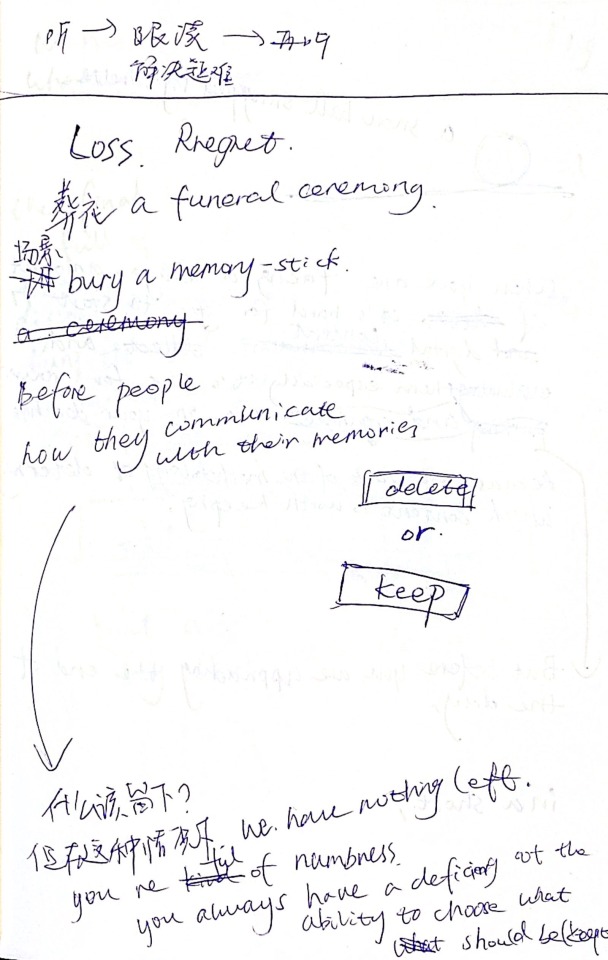 听 → 眼误 → 再听
解决疑难
Loss. Rregret.
葬花 a funeral ceremong.
场景
bury a memory-stick.
a ceremony
Before people
how they communicate
with their memories
delete
or.
keep
什么该留下?
但在这种情况下 we have nothing left.
you 're ful of numbness.
you always have a deficieny of the
ability to choose what
should be (keept